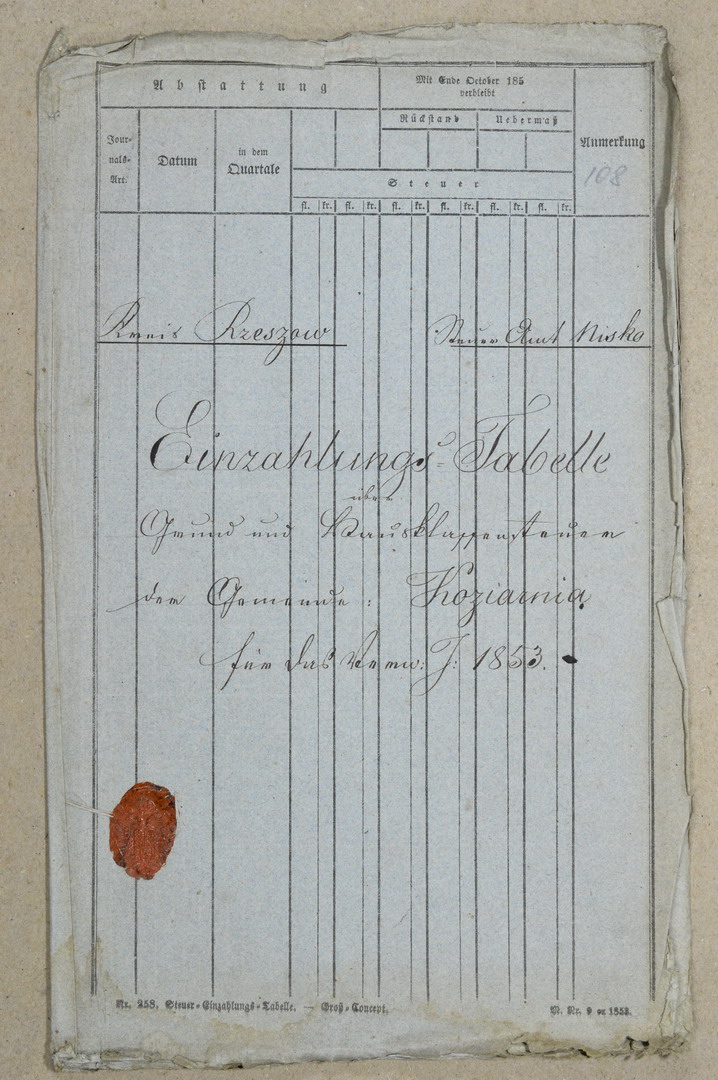 Abstattung
Mit Ende October 185
verbleibt
Rückstand
Uebermaß
Jour-
nals-
Art.
Datum
in dem
Quartale
Anmerkung
108
Steuer
fl. kr. fl. kr. fl. kr. fl. kr. fl. kr. fl. kr.
Kreis Rzeszow
Steuer Amt Nisko
Einzahlungs-Tabelle
über
Grund und Hausklassensteuer
der Gemeinde: Koziarnia
für das Verw: J: 1853.
Nr. 258. Steuer-Einzahlungs-Tabelle. — Groß-Concept.
M. Nr. 9 ex 1852.